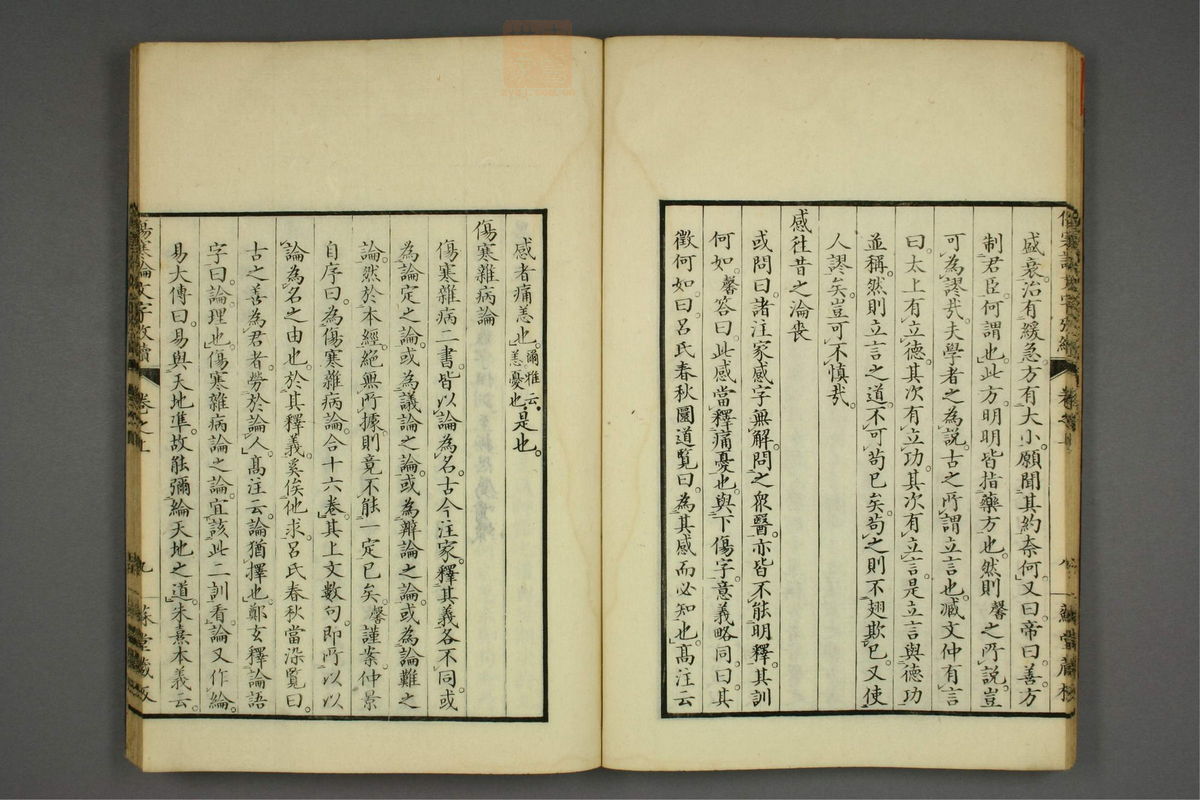 盛衰治有緩急。方有大小願聞其約奈何又曰。帝曰。善方
制君臣何謂也。此方明明皆指藥方也。然則馨之所說豈
可為謬哉夫學者之為說古之所謂立言也。臧文仲有言
曰。太上有立德。其次有立功。其次有立言是立言與德功
並稱。然則立言之道不可苟已矣苟之則不翅欺已又使
人謬矣豈可不慎哉。
感往昔之淪喪
或問曰諸注家感字無解問之衆醫亦皆不能明釋其訓
何如。馨答曰。此感當釋痛憂也。與下傷字意義略同曰其
徵何如曰呂氏春秋圜道覽曰。為其感而必知也。高注云
感者痛恙也。爾雅云。恙憂也。是也。
傷寒雜病論
傷寒雜病二書皆以論為名。古今注家釋其義各不同或
為論定之論。或為議論之論或為辨論之論。或為論難之
論。然於本經絕無所據則竟不能一定已矣。馨謹案仲景
自序曰。為傷寒雜病論合十六卷其上文數句。即所以以
論為名之由也。於其釋義奚俟他求。呂氏春秋當染覽曰。
古之善為君者。勞於論人。高注云論猶擇也。鄭玄釋論語
字曰。論理也。傷寒雜病論之論。宜該此二訓看。論又作綸。
易大傳曰。易與天地準。故能彌綸天地之道。朱熹本義云。
傷寒論文字攷續
卷之上
九
蘇堂藏板